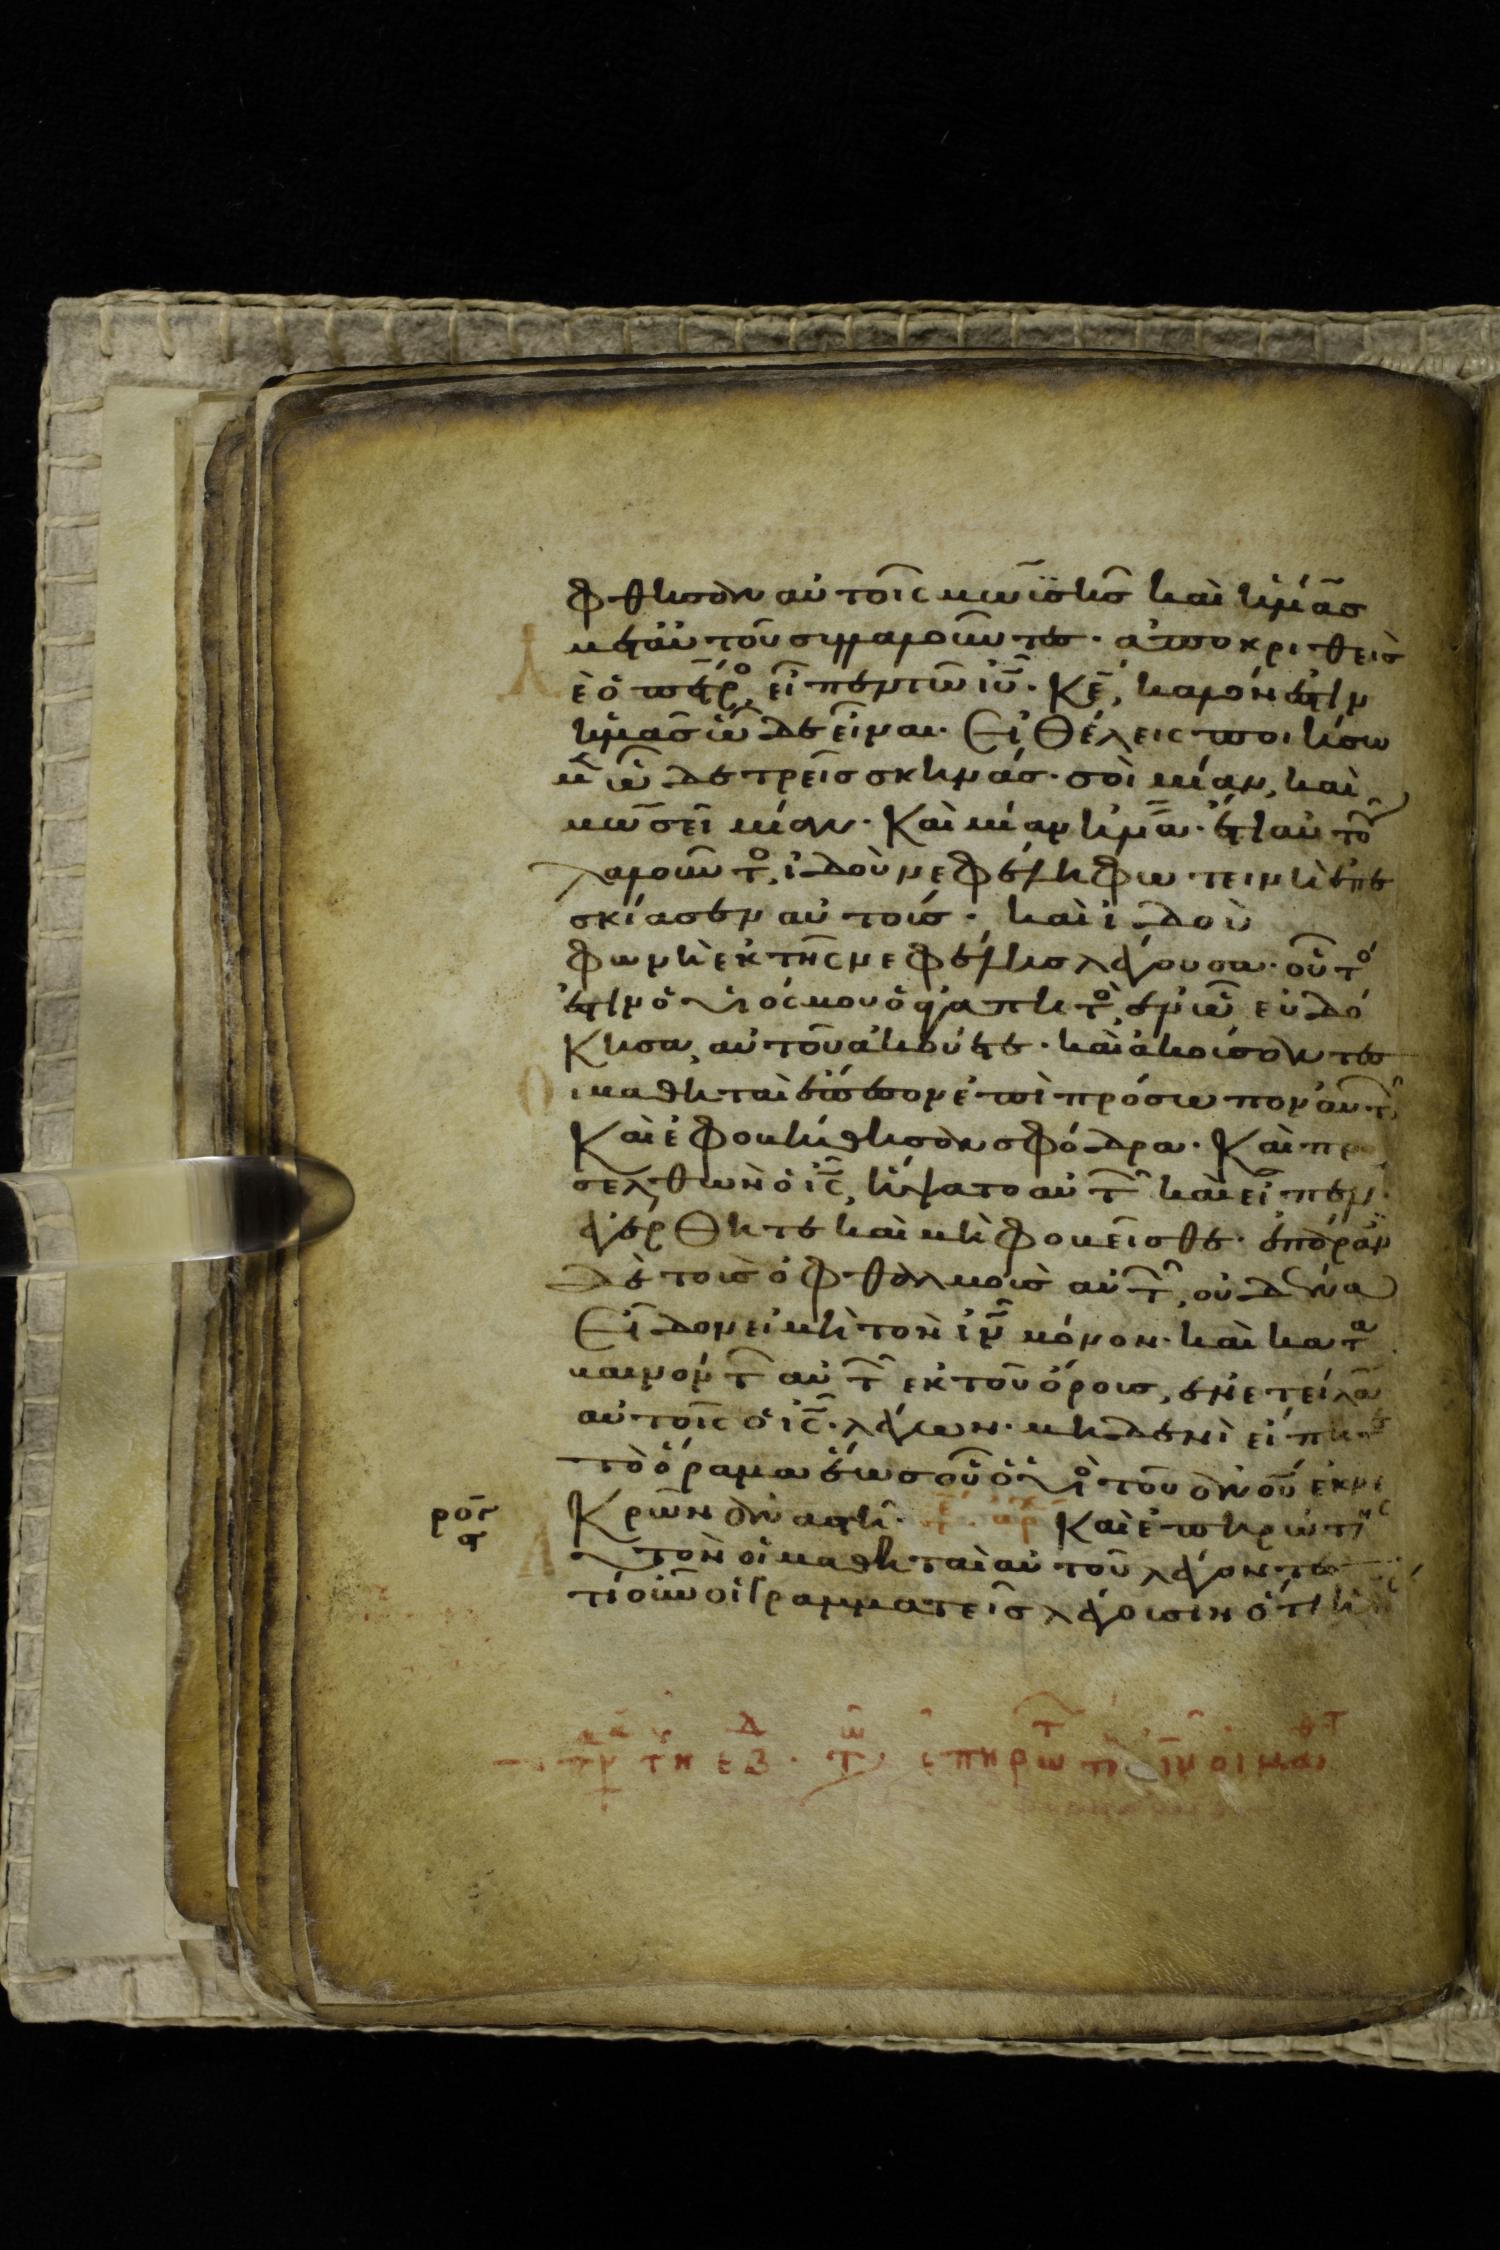 φθησαν αὐτοῖς μωϊσῆς καὶ ἡμίας
μετ αὐτοῦ συλλαλοῦντες. ἀποκριθεὶς
ὲ ὁ πέτρο, εἶπεν τῶ ἰῦ. Κε, καλόν ἐστιν
ἡμᾶς ὧδε εἶναι. Εἰ θέλεις ποιήσω
μ̂ ὧδε τρεῖς σκηνάς. σοὶ μίαν, καὶ
μωσεῖ μίαν. Καὶ μίαν ἡμία. ἔτι αὐτοῦ
λαλοῦντο, ἰδοὺ νεφέλη φωτεινὴ ἐπε
σκίασεν αὐτούς. καὶ ἰδοὺ
φωνὴ ἐκ τῆς νεφέλης λέγουσα. οὗτό
ἐστιν ὁ υἱός μου ὁ ἀγαπητὸ, ἐν ὧ εὐδό
κησα, αὐτοῦ ἀκούετε. καὶ ἀκούσαντες
ι μαθηταὶ ἔπεσον ἐπὶ πρόσωπον αὐτ
Καὶ ἐφοβήθησαν σφόδρα. Καὶ προ
σελθὼν ὁ ἰς, ἥψατο αὐτ καὶ εἶπεν.
ἐγέρθητε καὶ μὴ φοβεῖσθε. ἐπάραν
δὲ τοὺς ὀφθαλμοὺς αὐτ, οὐδένα
Εἶδον εἰ μὴ τὸν ἰν μόνον. καὶ κατα
βαινόντ αὐτ ἐκ τοῦ ὄρους, ἐνετείλα
αὐτοῖς ὁ ἰς. λέγων. μηδενὶ εἴπητε
τὸ ὅραμα ἕως οὗ ὁ υἱο τοῦ ἀνου ἐκ νε
ροε Κρῶν ἀναστῆ. Καὶ ἐπηρώτη
α υτὸν οἱ μαθηταὶ αὐτοῦ λέγοντες
τί οὖν οἱ γραμματεῖς λέγουσιν ὅτι ἠλ
τη εβδ. τω ἐπηρωτ ιν οἱ μαθτ